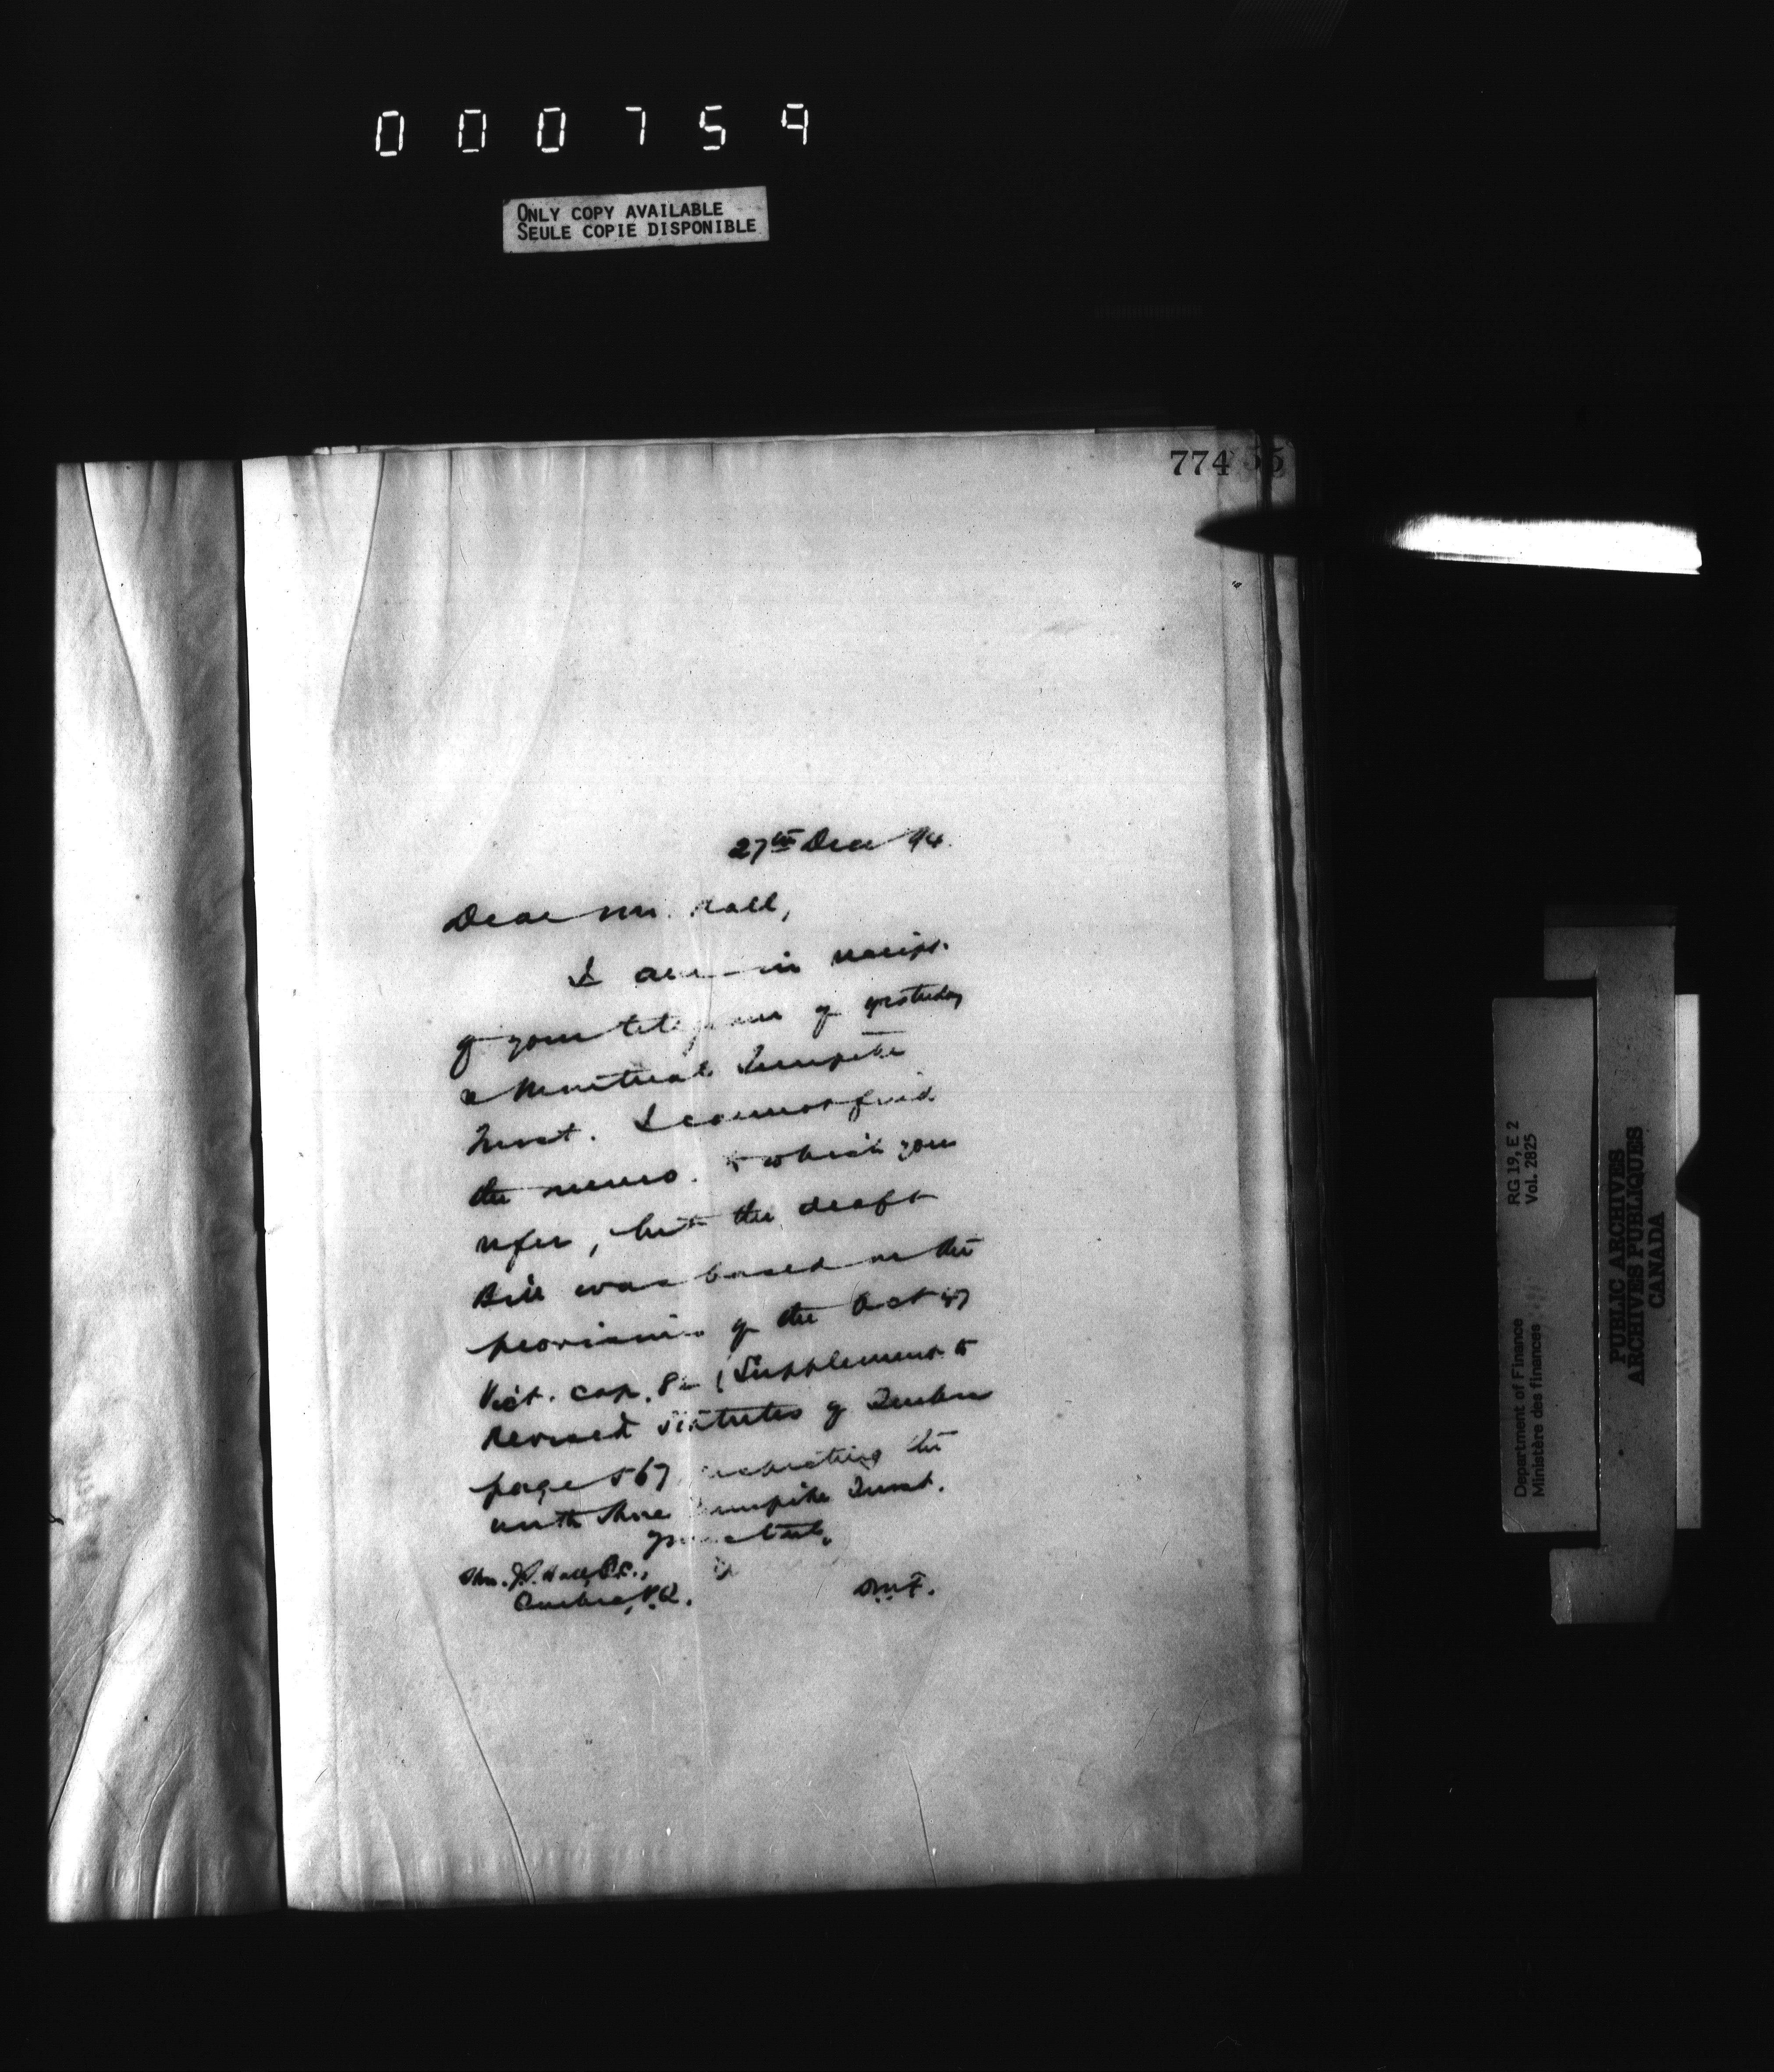 000759
ONLY COPY AVAILABLE
SEULE COPIE DISPONIBLE
774 55
27th Dec 94.
Dear Mr. Hall,
I am in receipt
of your telegram of yesterday
re Montreal Turnpike
Trust. I cannot find
the memo. to which you
refer, but the draft
Bill was based on the
provisions of the Act 47
Vict. cap. 8 (Supplement to
Revised Statutes of Quebec
page 567, respecting the
north shore Turnpike Trust.
Yours truly
Hon. J.S. Hall, Q.C.,
Quebec, P.Q.
D.M.F.
Department of Finance
Ministère des finances
RG 19, E 2
Vol. 2825
PUBLIC ARCHIVES
ARCHIVES PUBLIQUES
CANADA